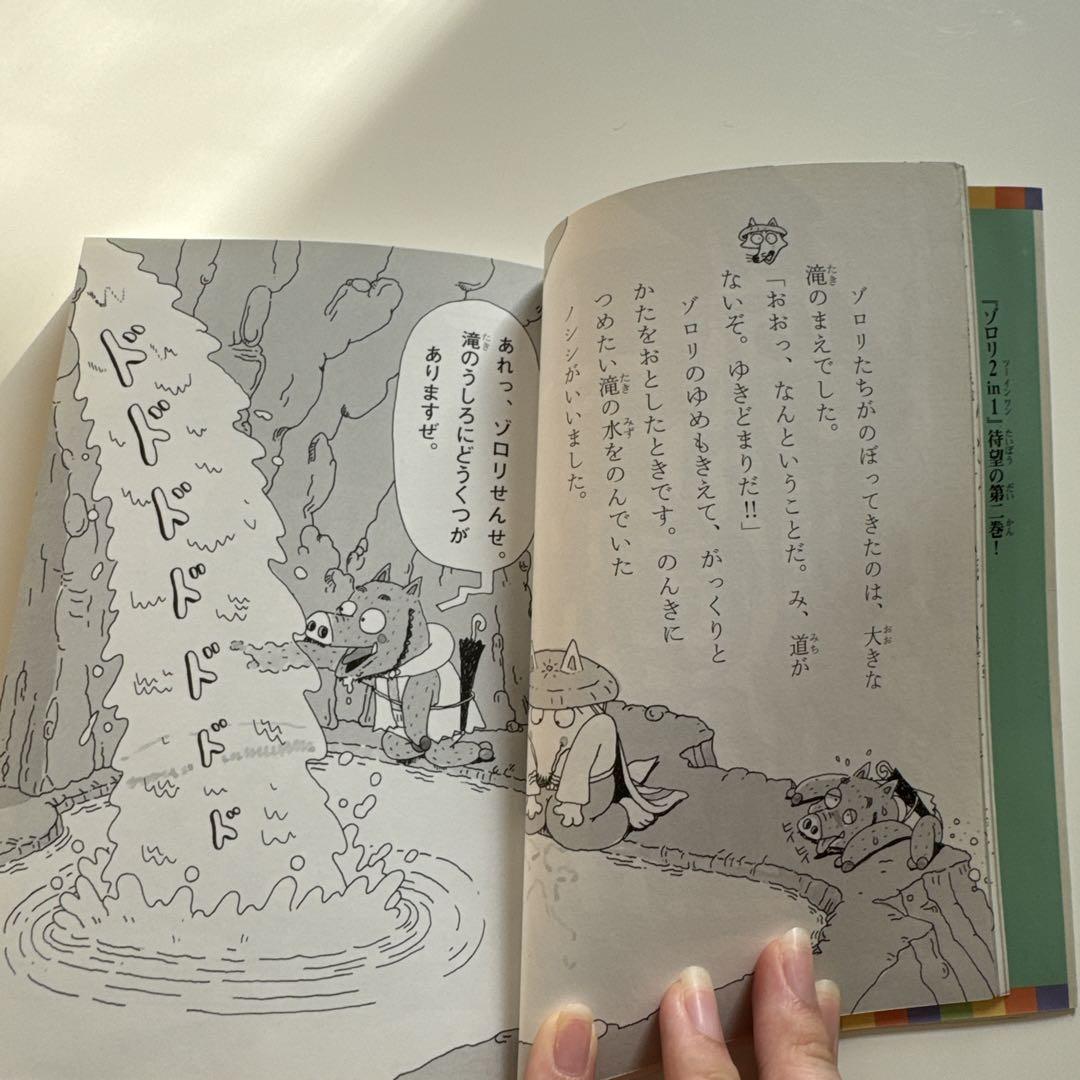 ゾロリたちがのぼってきたのは、大きな
滝のまえでした。
「おおっ、なんということだ。み、道が
ないぞ。ゆきどまりだ!!」
ゾロリのゆめもきえて、がっくりと
かたをおとしたときです。のんきに
つめたい滝の水をのんでいた
ノシシがいいました。
あれっ、ゾロリせんせ。
滝のうしろにどうくつが
ありますぜ。
ドドドドドドド
『ゾロリ2in1』待望の第二巻!